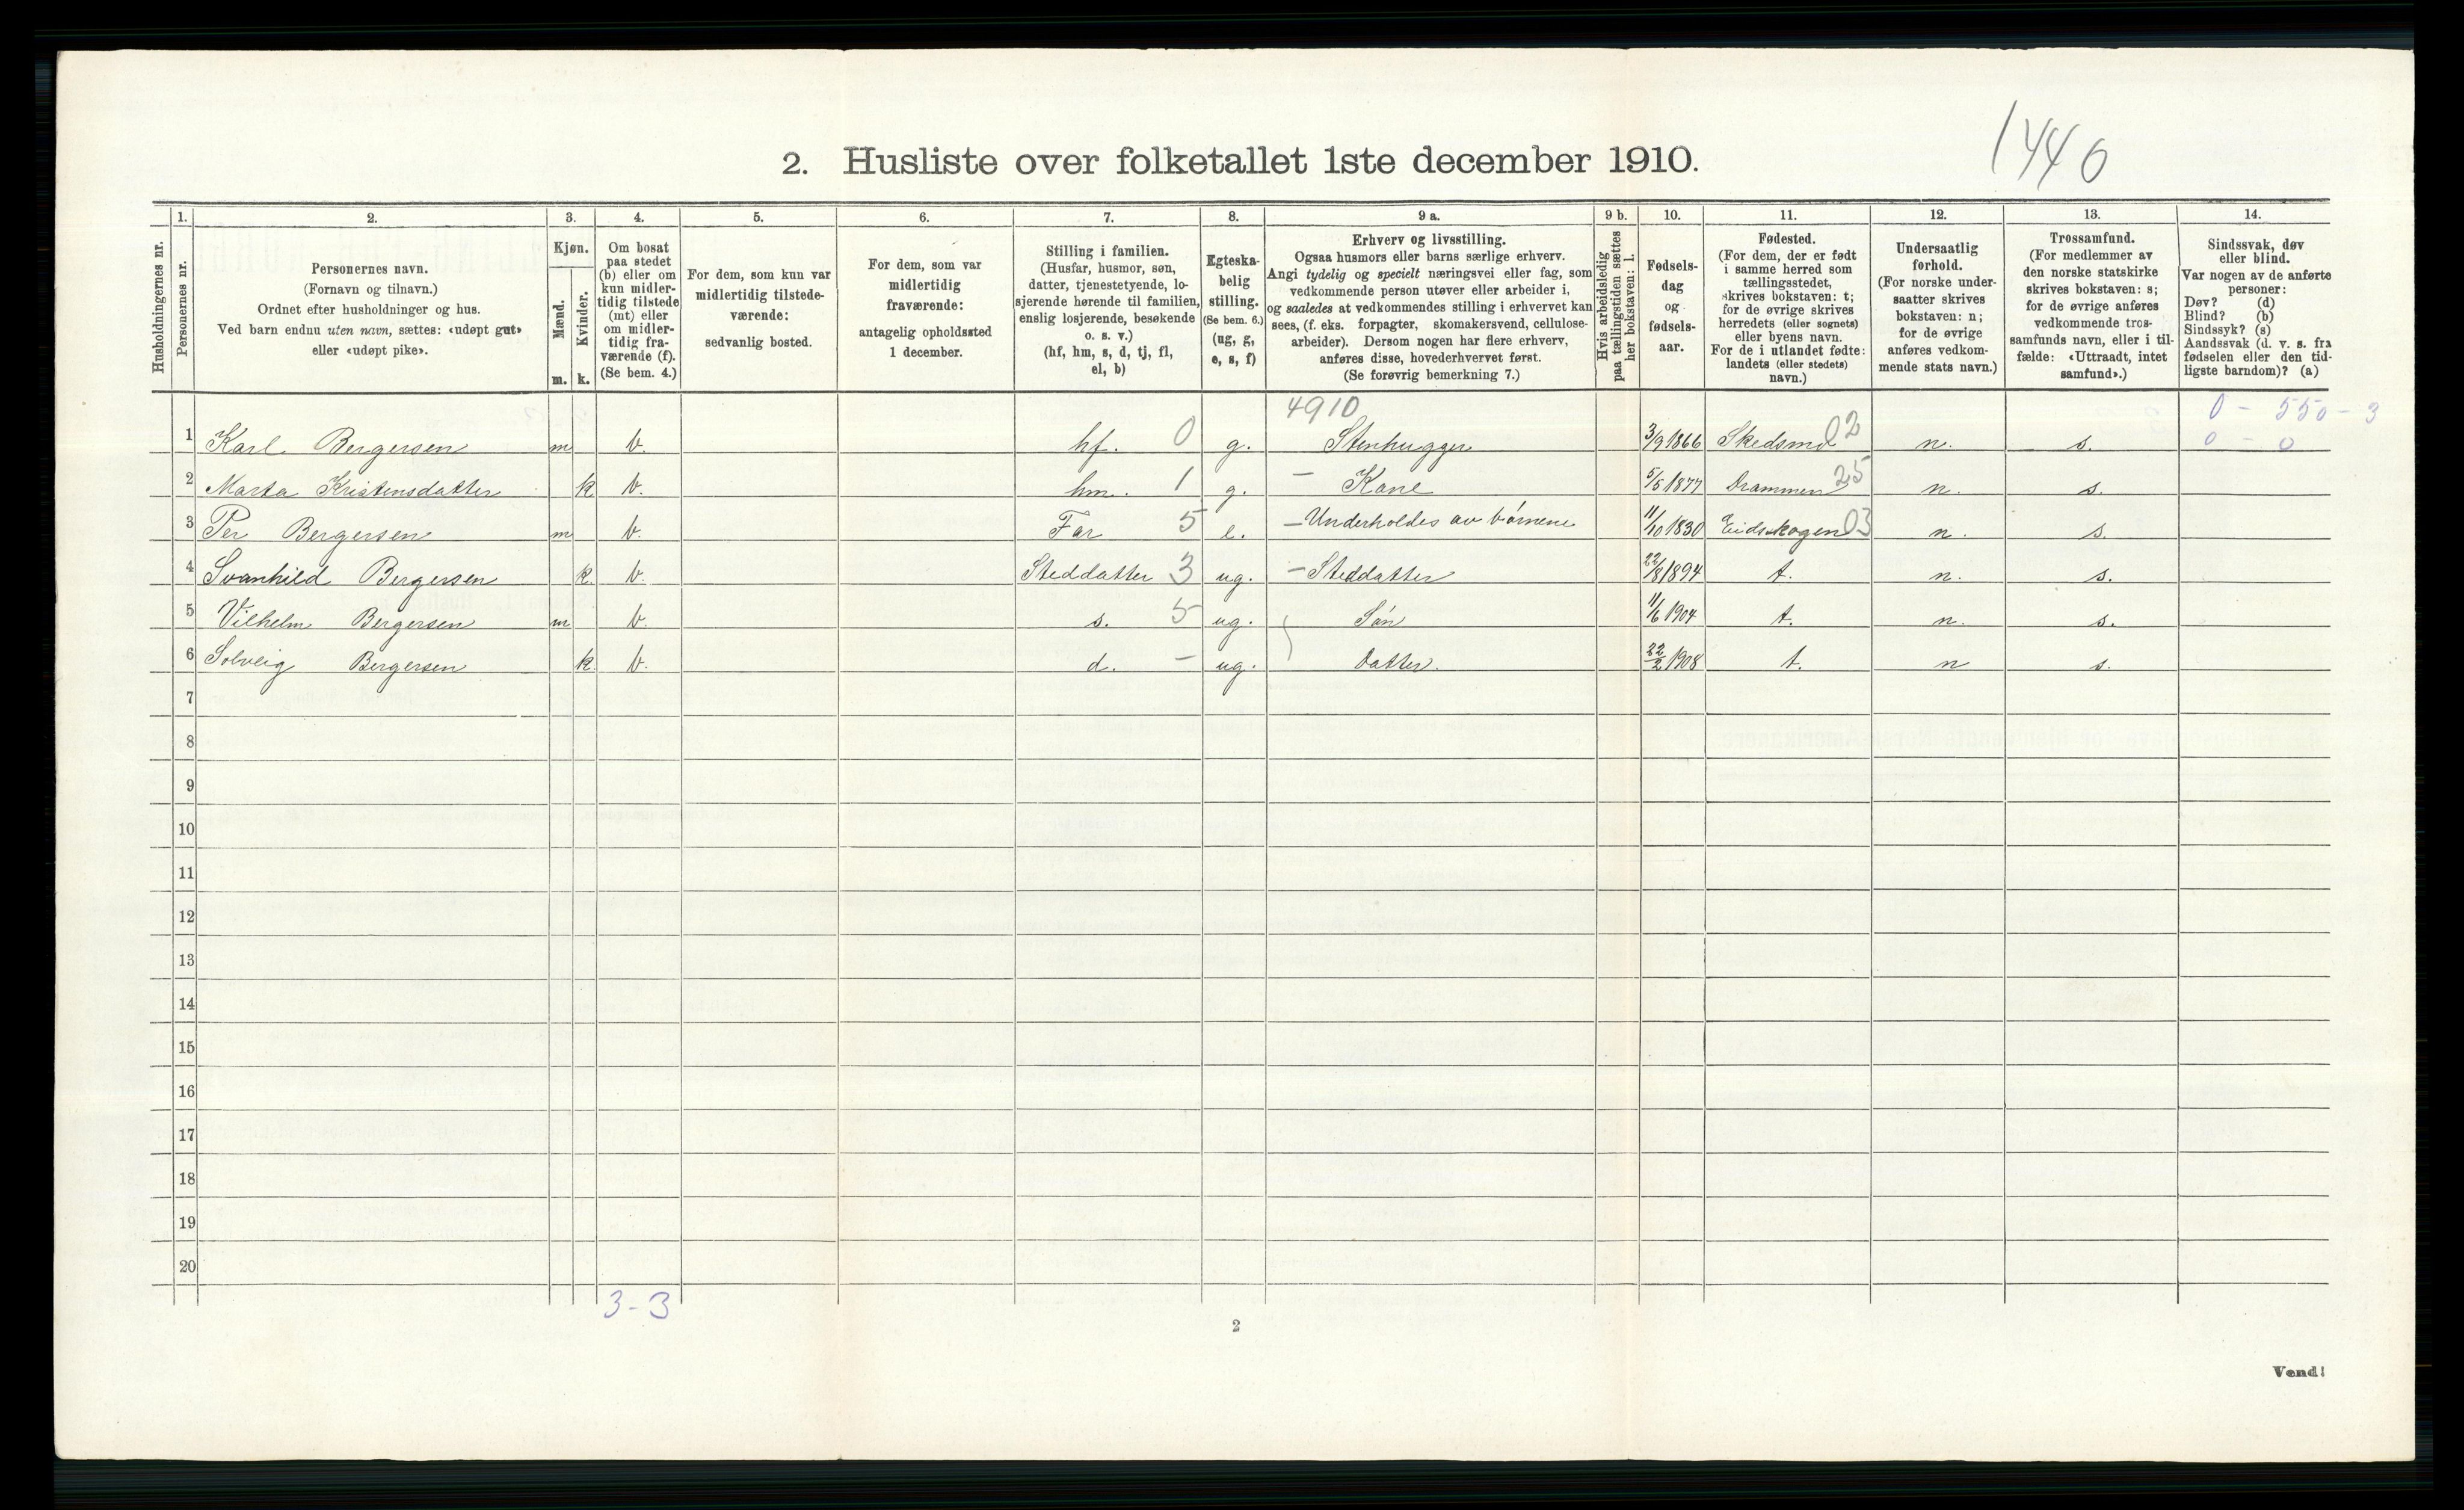 1440
2. Husliste over folketallet 1ste december 1910.
1. 2. 3. 4. 5. 6. 7. 8. 9 a. 9 b. 10. 11. 12. 13. 14.
Husholdningernes nr.
Personernes nr.
Personernes navn.
(Fornavn og tilnavn.)
Ordnet efter husholdninger og hus.
Ved barn endnu uten navn, sættes: «udøpt gut»
eller «udøpt pike».
Kjøn.
Mænd.
Kvinder.
m. k.
Om bosat
paa stedet
(b) eller om
kun midler-
tidig tilstede
(mt) eller
om midler-
tidig fra-
værende (f).
(Se bem. 4.)
For dem, som kun var
midlertidig tilstede-
værende:
sedvanlig bosted.
For dem, som var
midlertidig
fraværende:
antagelig opholdssted
1 december.
Stilling i familien.
(Husfar, husmor, søn,
datter, tjenestetyende, lo-
sjerende hørende til familien,
enslig losjerende, besøkende
o. s. v.)
(hf, hm, s, d, tj, fl,
el, b)
Egteska-
belig
stilling.
(Se bem. 6.)
(ug, g,
e, s, f)
Erhverv og livsstilling.
Ogsaa husmors eller barns særlige erhverv.
Angi tydelig og specielt næringsvei eller fag, som
vedkommende person utøver eller arbeider i,
og saaledes at vedkommendes stilling i erhvervet kan
sees, (f. eks. forpagter, skomakersvend, cellulose-
arbeider). Dersom nogen har flere erhverv,
anføres disse, hovederhvervet først.
(Se forøvrig bemerkning 7.)
Hvis arbeidsledig
paa tællingstiden sættes
her bokstaven: l.
Fødsels-
dag
og
fødsels-
aar.
Fødested.
(For dem, der er født
i samme herred som
tællingsstedet,
skrives bokstaven: t;
for de øvrige skrives
herredets (eller sognets)
eller byens navn.
For de i utlandet fødte:
landets (eller stedets)
navn.)
Undersaatlig
forhold.
(For norske under-
saatter skrives
bokstaven: n;
for de øvrige
anføres vedkom-
mende stats navn.)
Trossamfund.
(For medlemmer av
den norske statskirke
skrives bokstaven: s;
for de øvrige anføres
vedkommende tros-
samfunds navn, eller i til-
fælde: «Uttraadt, intet
samfund».)
Sindssvak, døv
eller blind.
Var nogen av de anførte
personer:
Døv? (d)
Blind? (b)
Sindssyk? (s)
Aandssvak (d. v. s. fra
fødselen eller den tid-
ligste barndom)? (a)
4910 0 - 550 - 3
1 Karl Bergersen m b. hf. 0 g. Stenhugger 3/9 1866 Skedsmo 02 n. s. 0 - 0
2 Marta Kristensdatter k b. hm. 1 g. - Kone 5/5 1877 Drammen 25 n. s.
3 Per Bergersen m b. Far 5 e. - Underholdes av børnene 11/10 1830 Eidskogen 03 n. s.
4 Svanhild Bergersen k. b. Steddatter 3 ug. - Steddatter 22/8 1894 t. n. s.
5 Vilhelm Bergersen m b. s. 5 ug. Søn 11/6 1904 t. n. s.
6 Solveig Bergersen k. b. d. - ug. Datter. 22/2 1908 t. n s.
7
8
9
10
11
12
13
14
15
16
17
18
19
20
3 - 3
2
Vend!